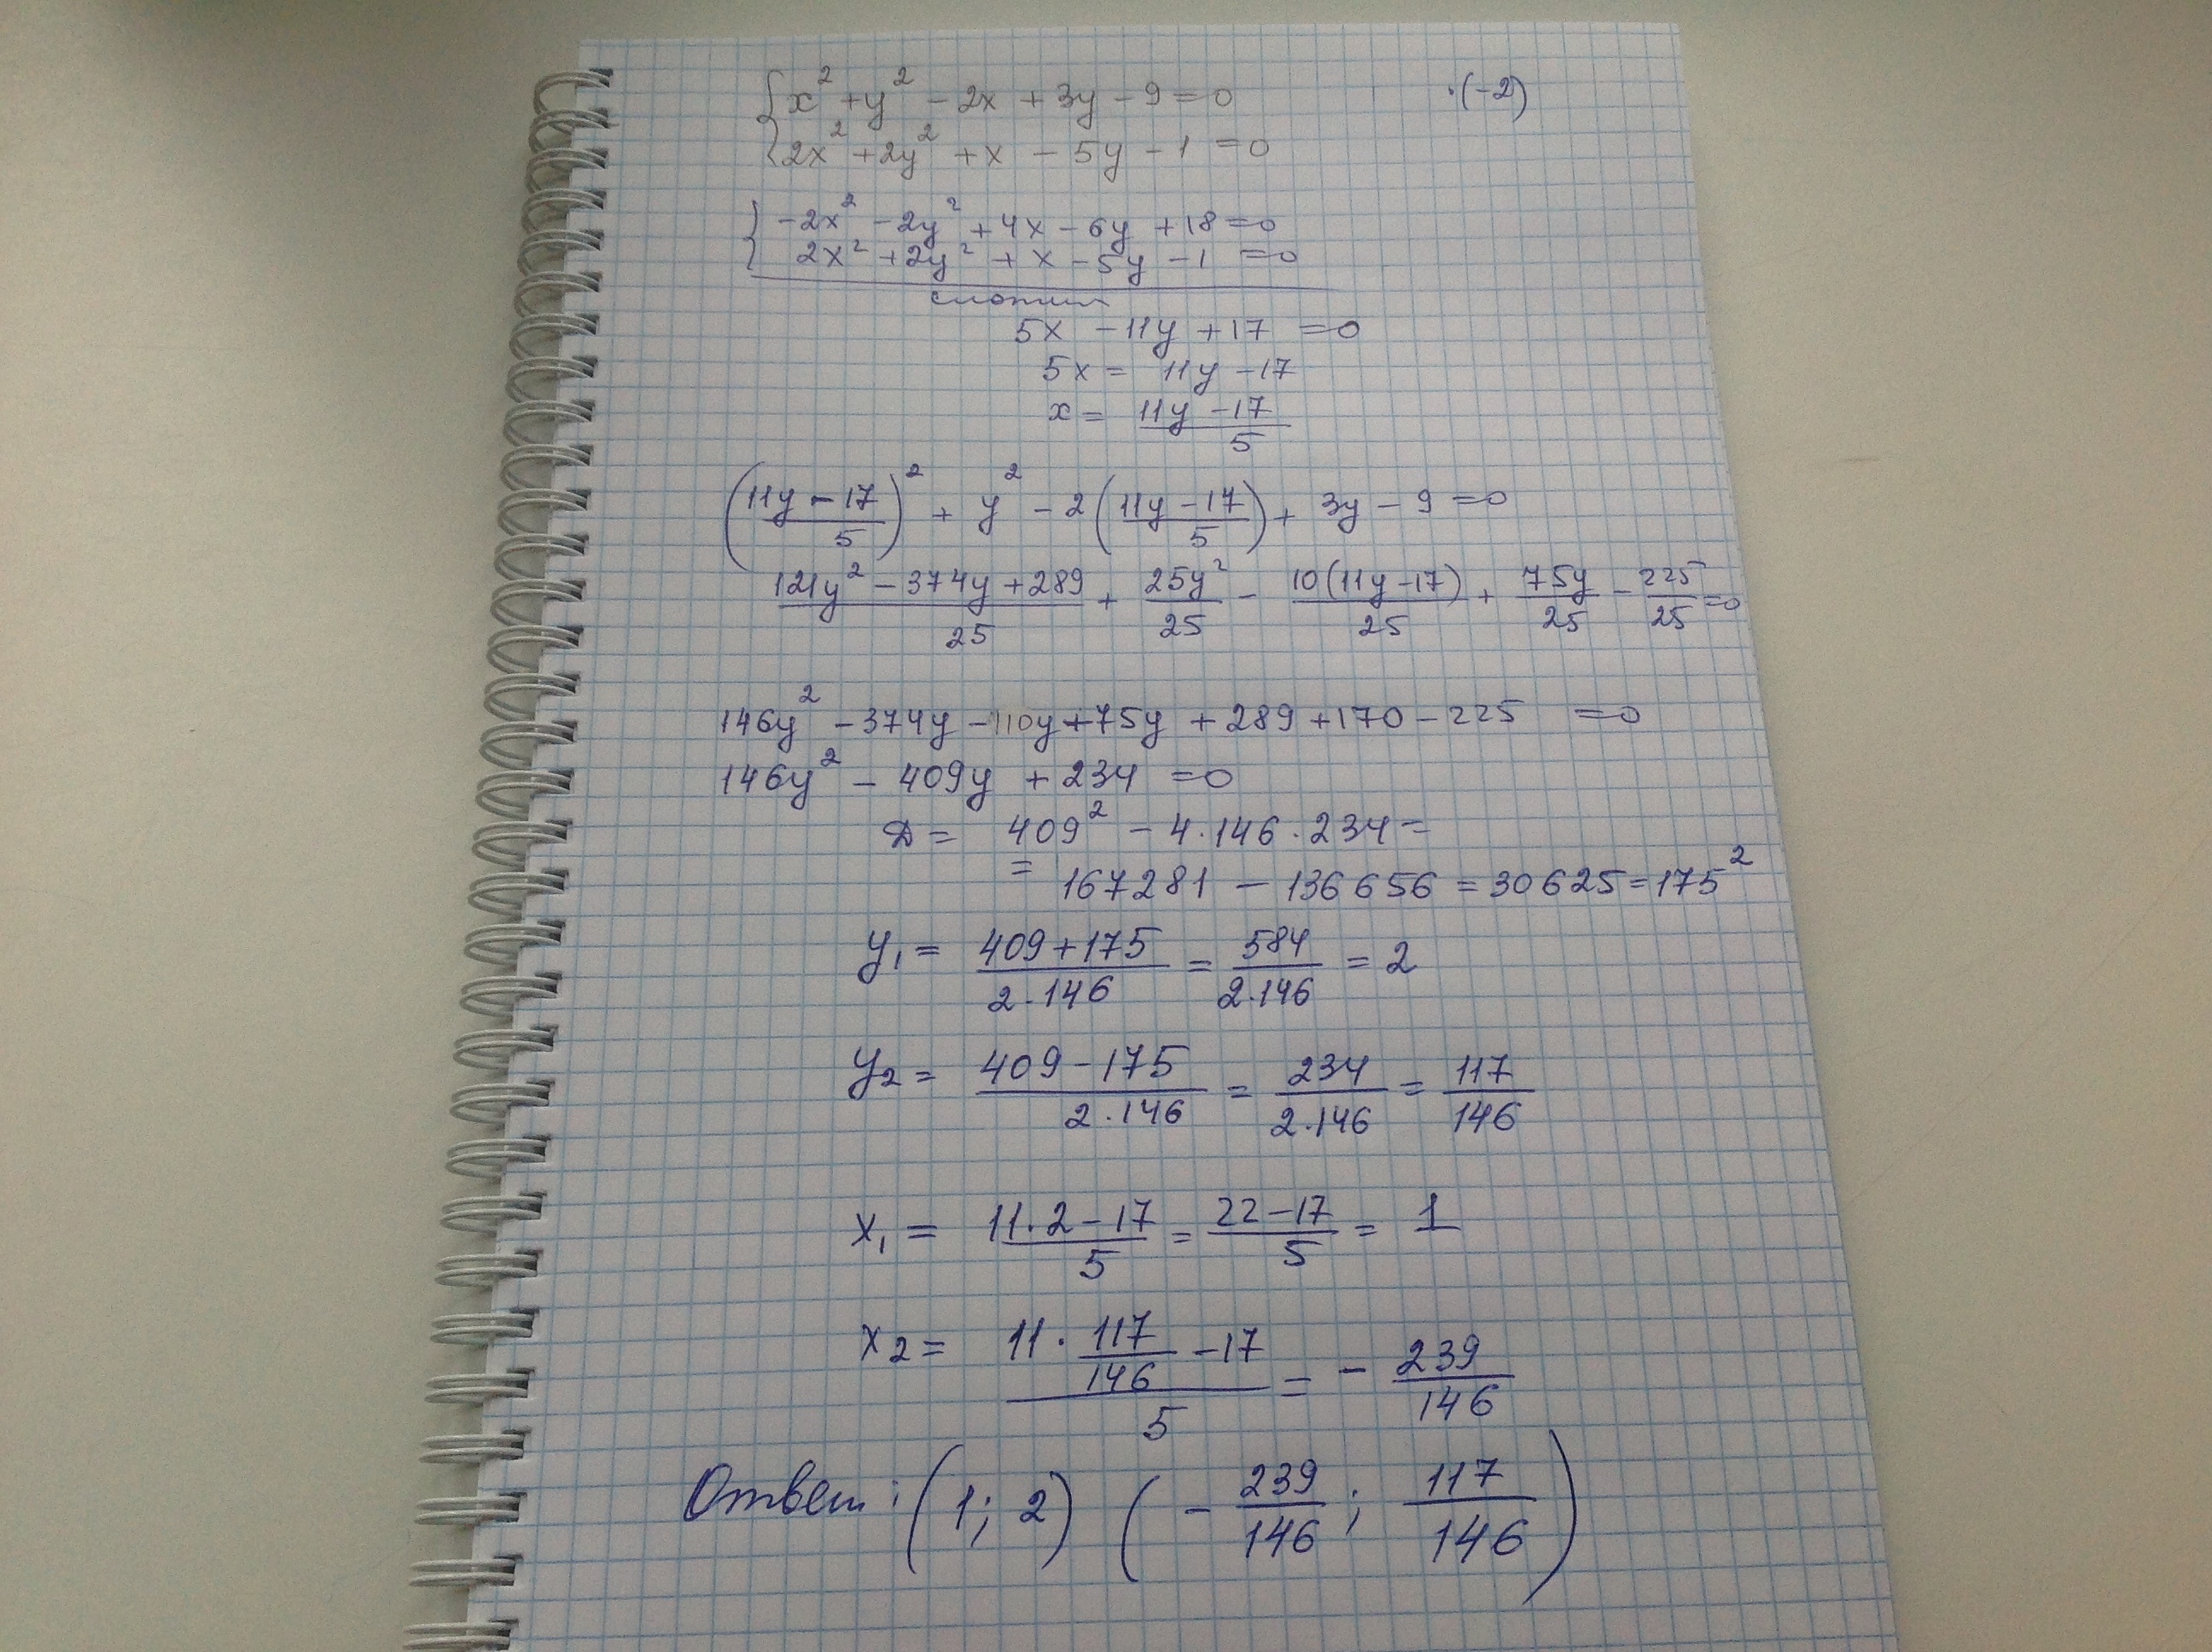 { x² + y² - 2x + 3y - 9 = 0 ·(-2)
2x² + 2y² + x - 5y - 1 = 0
{ -2x² - 2y² + 4x - 6y + 18 = 0
2x² + 2y² + x - 5y - 1 = 0
сложим
5x - 11y + 17 = 0
5x = 11y - 17
x = (11y - 17)/5
((11y - 17)/5)² + y² - 2((11y - 17)/5) + 3y - 9 = 0
(121y² - 374y + 289)/25 + 25y²/25 - 10(11y - 17)/25 + 75y/25 - 225/25 = 0
146y² - 374y - 110y + 75y + 289 + 170 - 225 = 0
146y² - 409y + 234 = 0
D = 409² - 4·146·234 =
= 167281 - 136656 = 30625 = 175²
y₁ = (409 + 175)/(2·146) = 584/(2·146) = 2
y₂ = (409 - 175)/(2·146) = 234/(2·146) = 117/146
x₁ = (11·2 - 17)/5 = (22 - 17)/5 = 1
x₂ = (11·117/146 - 17)/5 = -239/146
Ответ: (1; 2) (-239/146; 117/146)